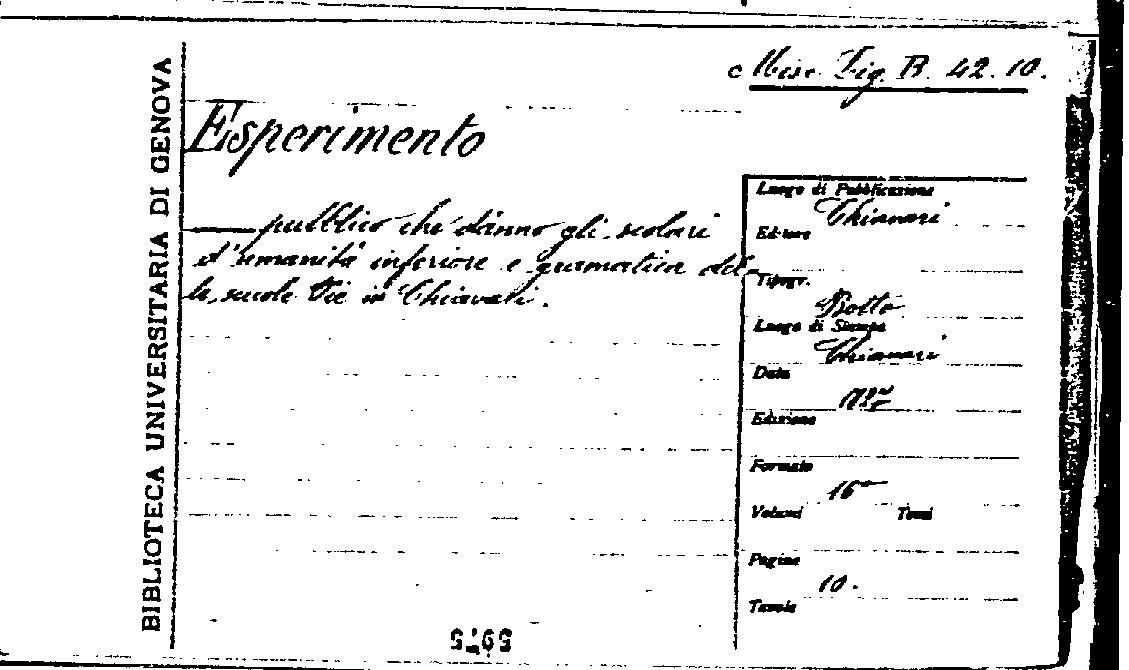 BIBLIOTECA UNIVERSITARIA DI GENOVA
Misc. Lig. B. 42. 10.
Esperimento
—— pubblico che dànno gli scolari
d'umanità inferiore e gramatica del-
le scuole Pie in Chiavari.
Luogo di Pubblicazione
Chiavari
Editore
Tipogr.
Botto
Luogo di Stampa
Chiavari
Data
Edizione
Formato
16°
Volumi Tomi
Pagine
10.
Tavole